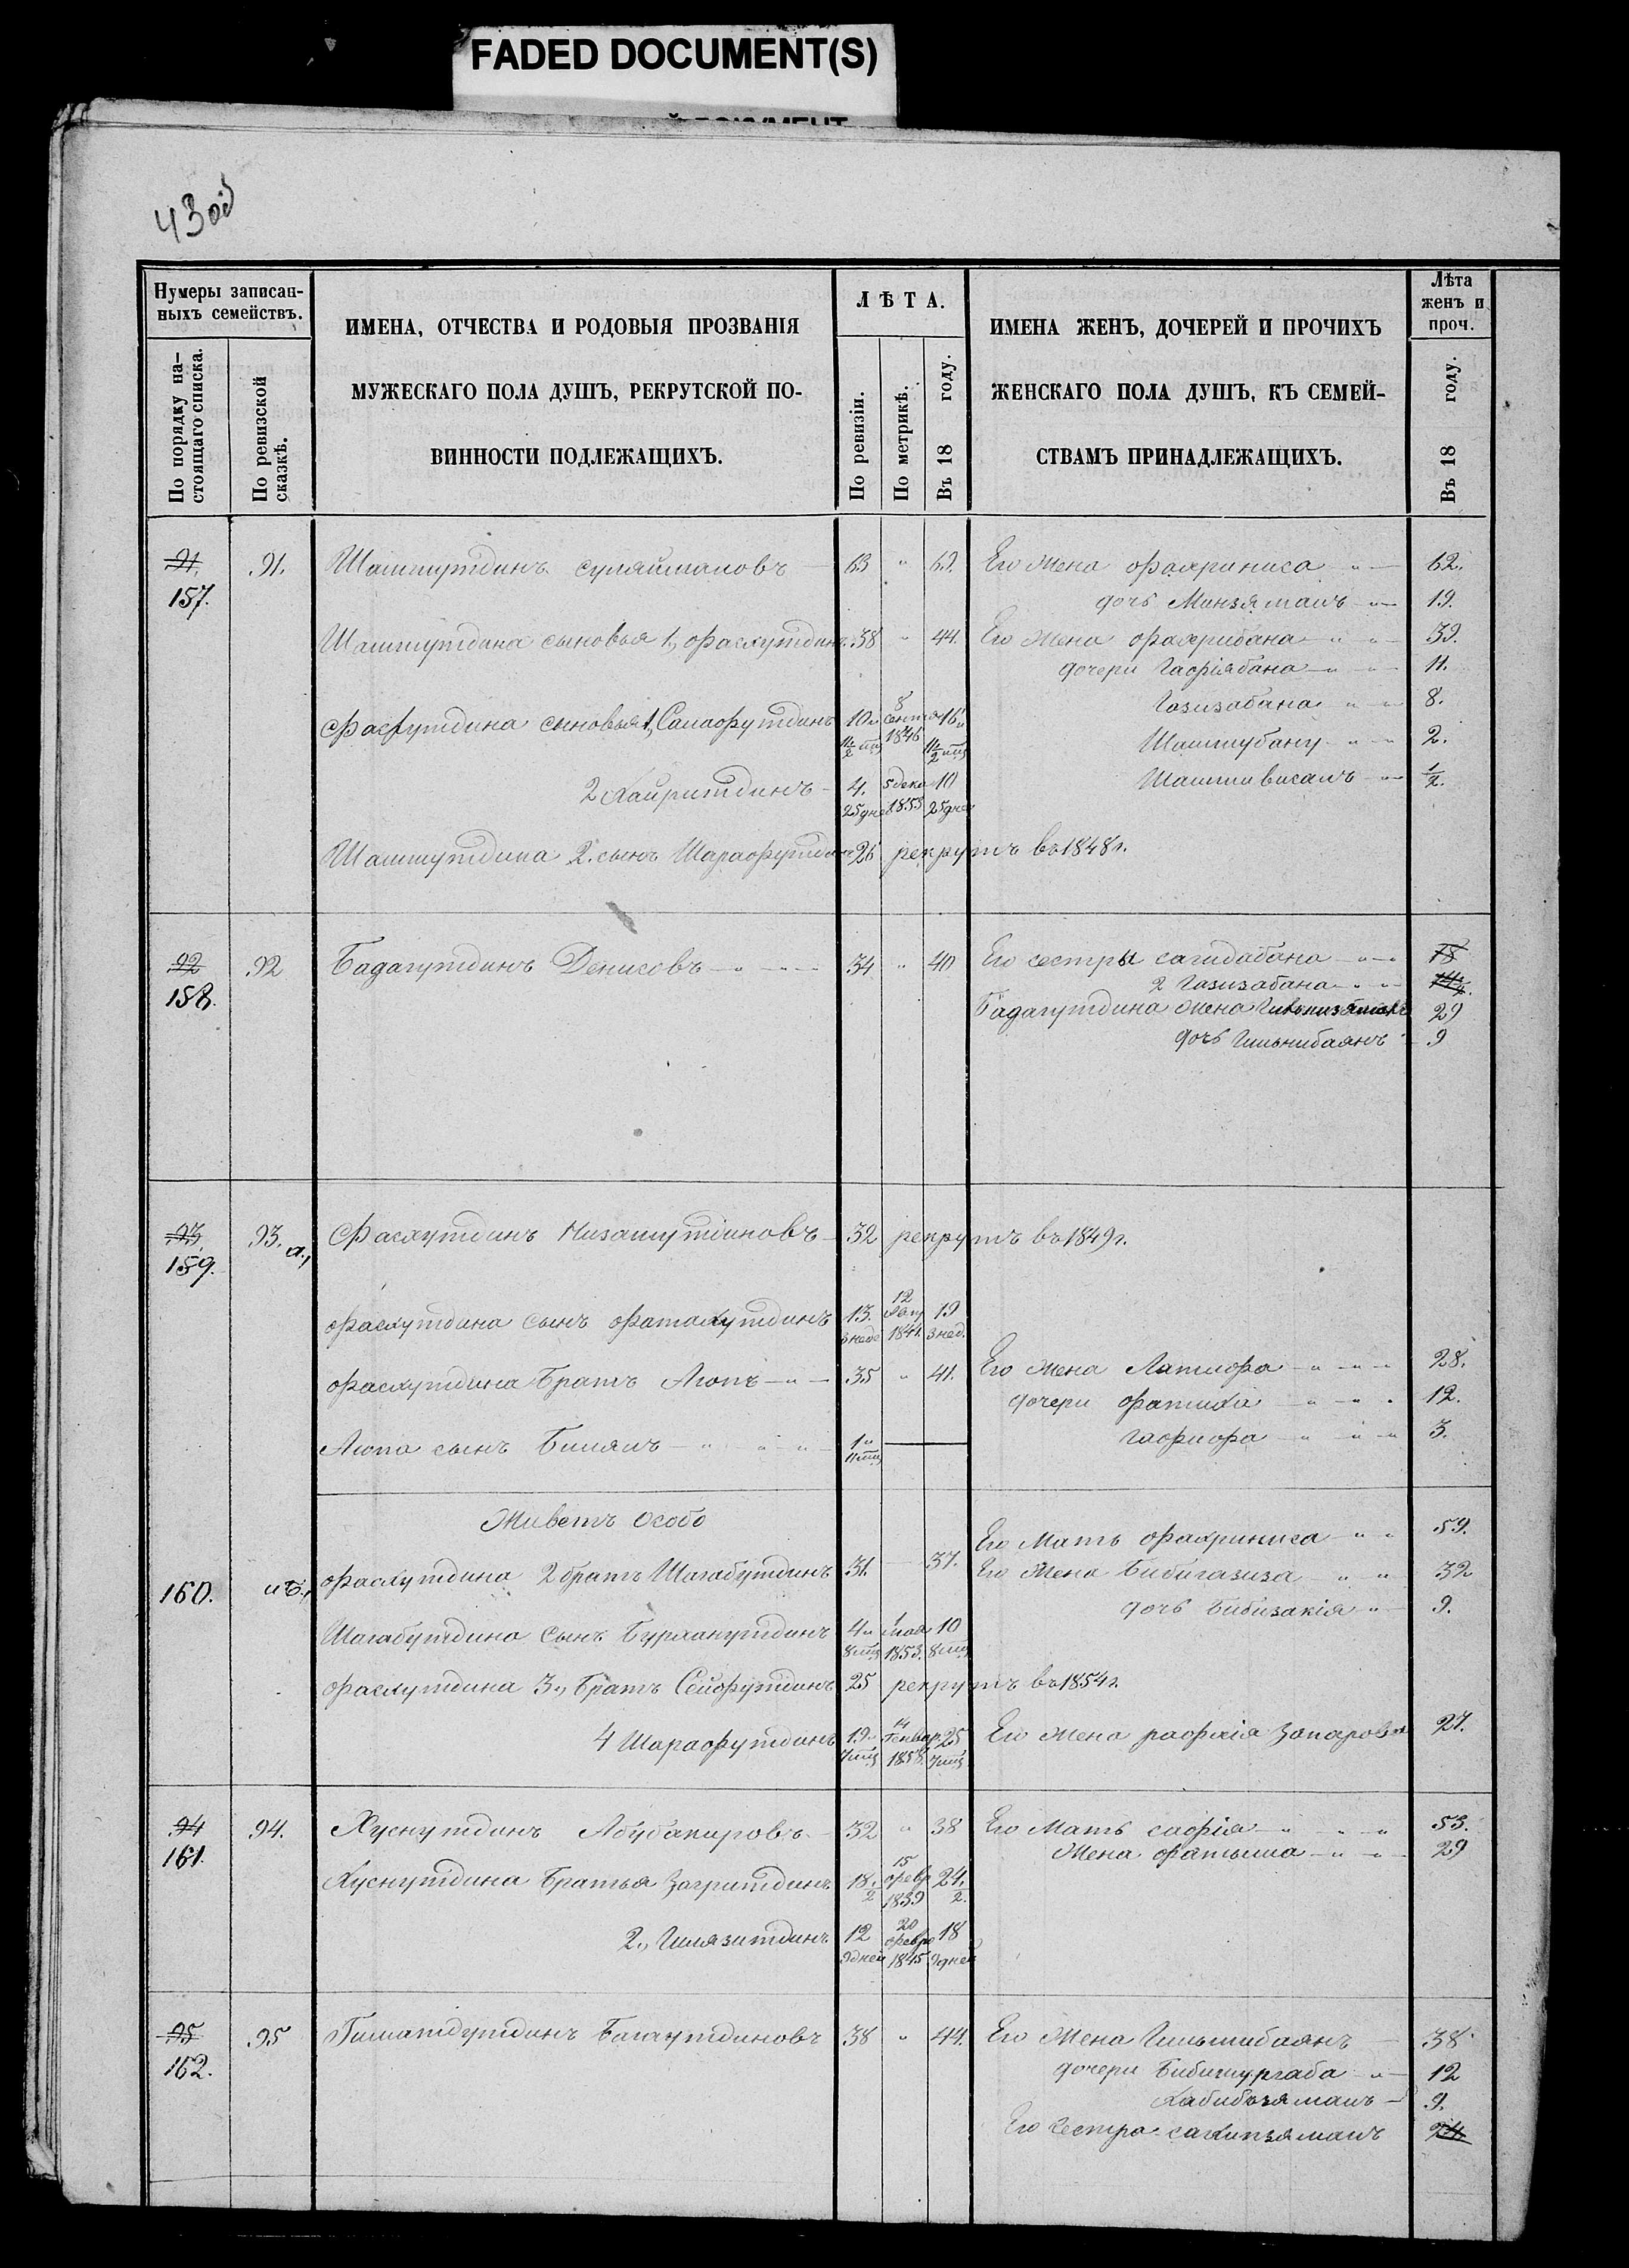 FADED DOCUMENT(S)
43 об
Нумеры записан-
ныхъ семействъ.
По порядку на-
стоящаго списка.
По ревизской
сказкѣ.
ИМЕНА, ОТЧЕСТВА И РОДОВЫЯ ПРОЗВАНІЯ
МУЖЕСКАГО ПОЛА ДУШЪ, РЕКРУТСКОЙ ПО-
ВИННОСТИ ПОДЛЕЖАЩИХЪ.
ЛѢТА.
По ревизіи.
По метрикѣ.
Въ 18 году.
ИМЕНА ЖЕНЪ, ДОЧЕРЕЙ И ПРОЧИХЪ
ЖЕНСКАГО ПОЛА ДУШЪ, КЪ СЕМЕЙ-
СТВАМЪ ПРИНАДЛЕЖАЩИХЪ.
Лѣта
женъ и
проч.
Въ 18 году.
91. 91. Шамшутдинъ Сулеймановъ 63 " 69. Его жена Фахриниса " 62.
157. дочь Минзяманъ 19.
Шамшутдина сыновья 1, Фасхутдинъ 38 " 44. Его жена Фахрибана " 39.
дочери Гафіябана " 11.
Газизабана " 8.
Фасхутдина сыновья 1, Самафутдинъ 10 8 сентя 1846 16
11/2 мщ 11/2 мщ Шамшубану " 2.
2 Хайритдинъ 4. 5 дека 10 Шамшивисанъ 1/2.
25 дне 1853 25 дне
Шамшутдина 2. сынъ Шарафутдинъ 26 рекрутъ въ 1848 г.
92 92 Бадагутдинъ Денисовъ " 34 " 40 Его сестры Сагидабана " 18
158. 2 Газизабана "
Бадагутдина жена 29
дочь Гильнибаянъ 9
93. 93. а, Фасхутдинъ Низамутдиновъ 32 рекрутъ въ 1849 г.
159.
Фасхутдина сынъ Фатахутдинъ 13. 12 19
3 неде 1841. 3 нед.
Фасхутдина братъ Аюпъ " 35 " 41. Его жена Латифа " 28.
дочери Фатиха " 12.
Аюпа сынъ Билялъ " 1 " Гафифа " 3.
11 мщ
Живетъ особо
Его мать Фахриниса " 59.
160. и б., Фасхутдина 2 братъ Шагабутдинъ 31. 37. Его жена Бибигазиза " 32
дочь Бибизакія " 9.
Шагабутдина сынъ Бурханутдинъ 4 " 1 мая 10
8 мщ 1853. 8 мщ
Фасхутдина 3, братъ Сейфутдинъ 25 рекрутъ въ 1854 г.
4 Шарафутдинъ 19 14 Генвар 25 Его жена Рафкія Запарова 27.
7 мщ 1838. 7 мщ
94 94. Хуснутдинъ Абубакировъ 32 " 38 Его мать Сафія " 53.
161. Жена Фатыма " 29
Хуснутдина братья Загритдинъ 18. 15 февр 24.
2 1839 2.
2., Гилязитдинъ 12 20 февр 18
9 дней 1845 9 дней
95 95 Гиматдутдинъ Багаутдиновъ 38 " 44. Его жена Гильмибаянъ 38.
162. дочери Бибинургаба " 12
Хабибзяманъ 9.
Его сестра Сахипзяманъ 24